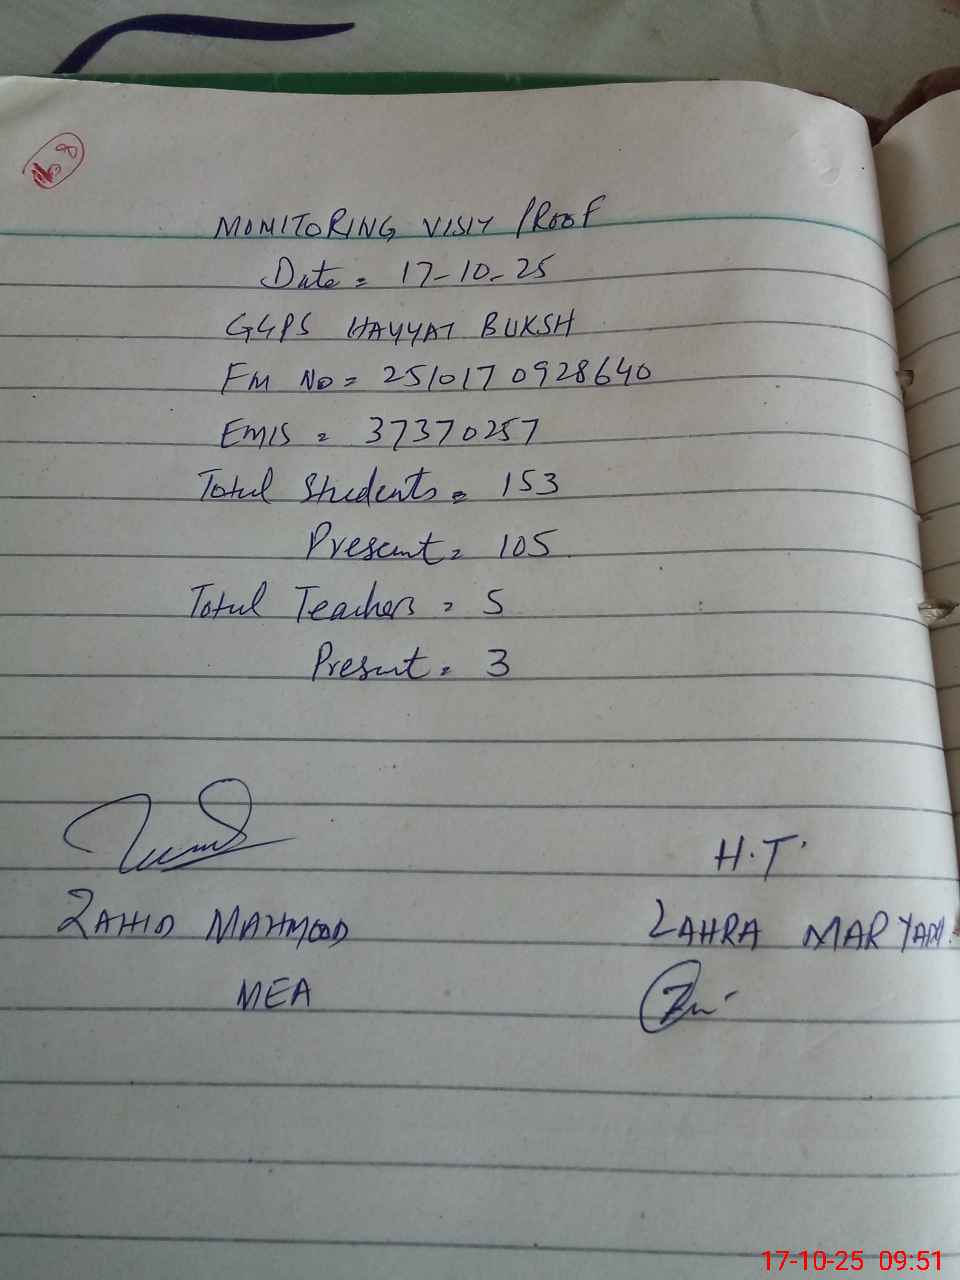 8
MONITORING VISIT PROOF
Date = 17-10-25
GGPS HAYYAT BUKSH
FM NO = 251017 0928640
EMIS = 37370257
Total Students = 153
Present = 105
Total Teachers = 5
Present = 3
H.T.
ZAHID MAHMOOD
ZAHRA MARYAM.
MEA
17-10-25 09:51